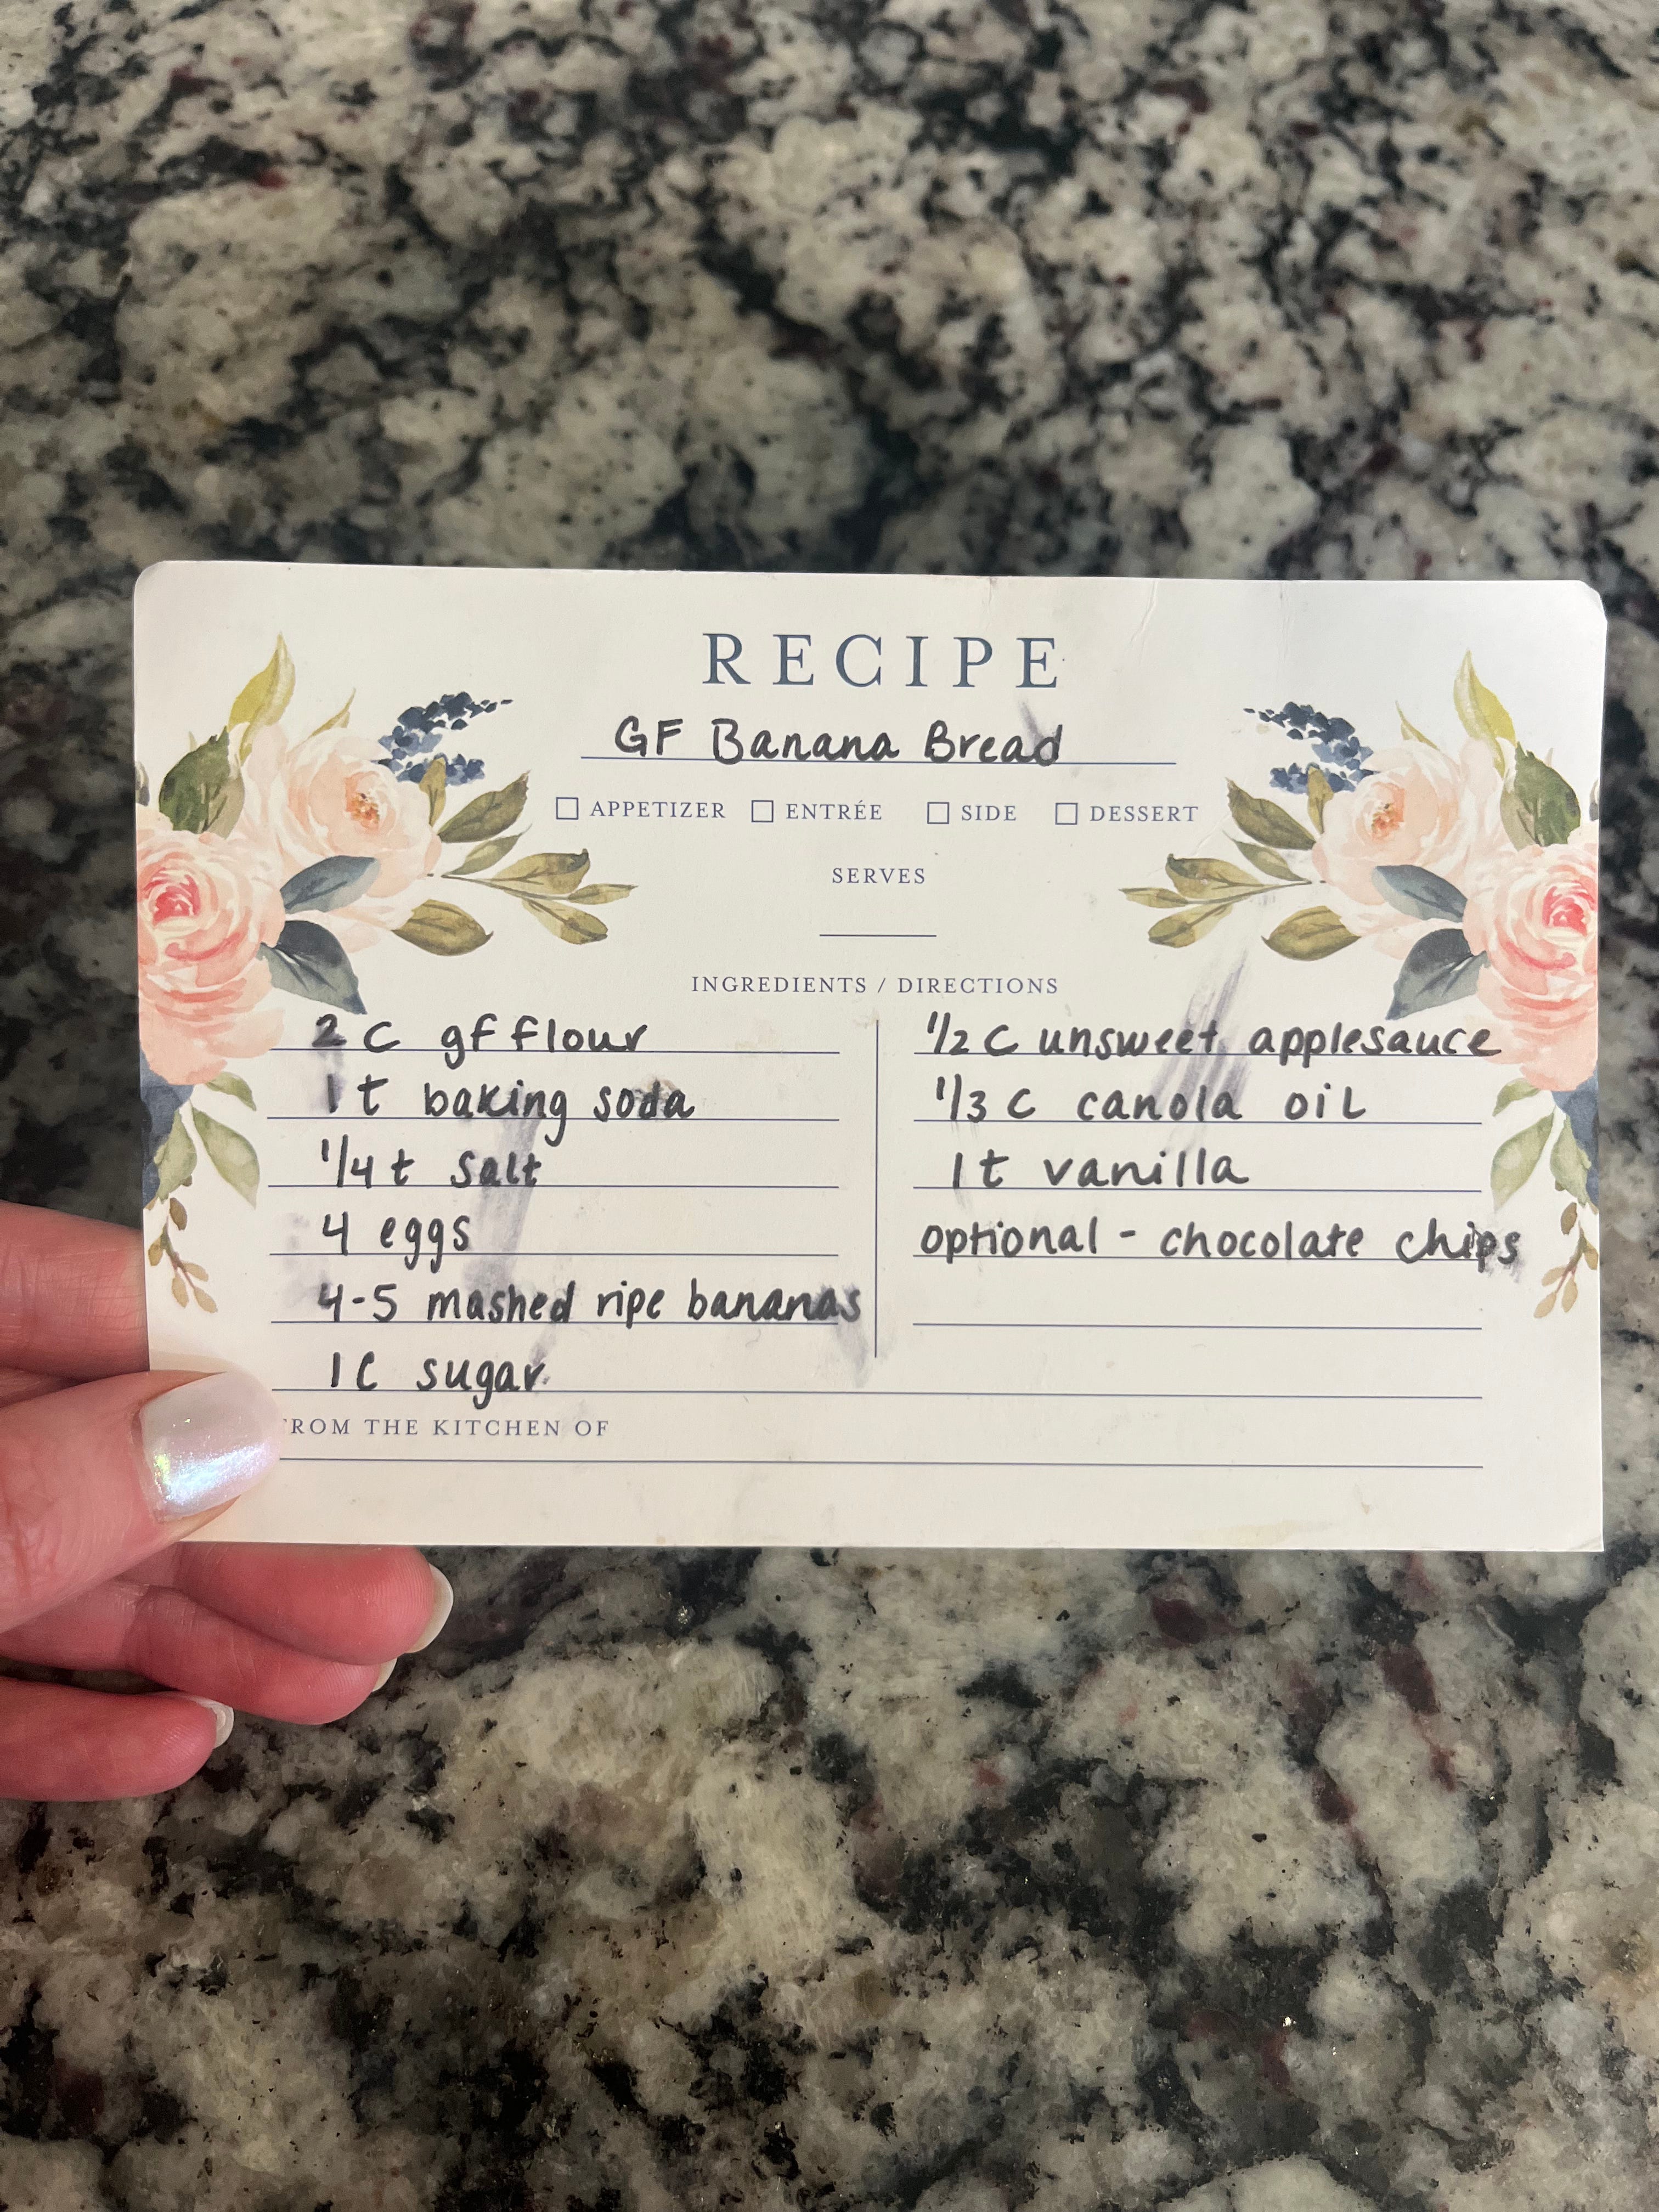 RECIPE
GF Banana Bread
APPETIZER ENTRÉE SIDE DESSERT
SERVES
INGREDIENTS / DIRECTIONS
2 C gf flour
1 t baking soda
1/4 t salt
4 eggs
4-5 mashed ripe bananas
1 C sugar
1/2 C unsweet applesauce
1/3 C canola oil
1 t vanilla
optional - chocolate chips
FROM THE KITCHEN OF